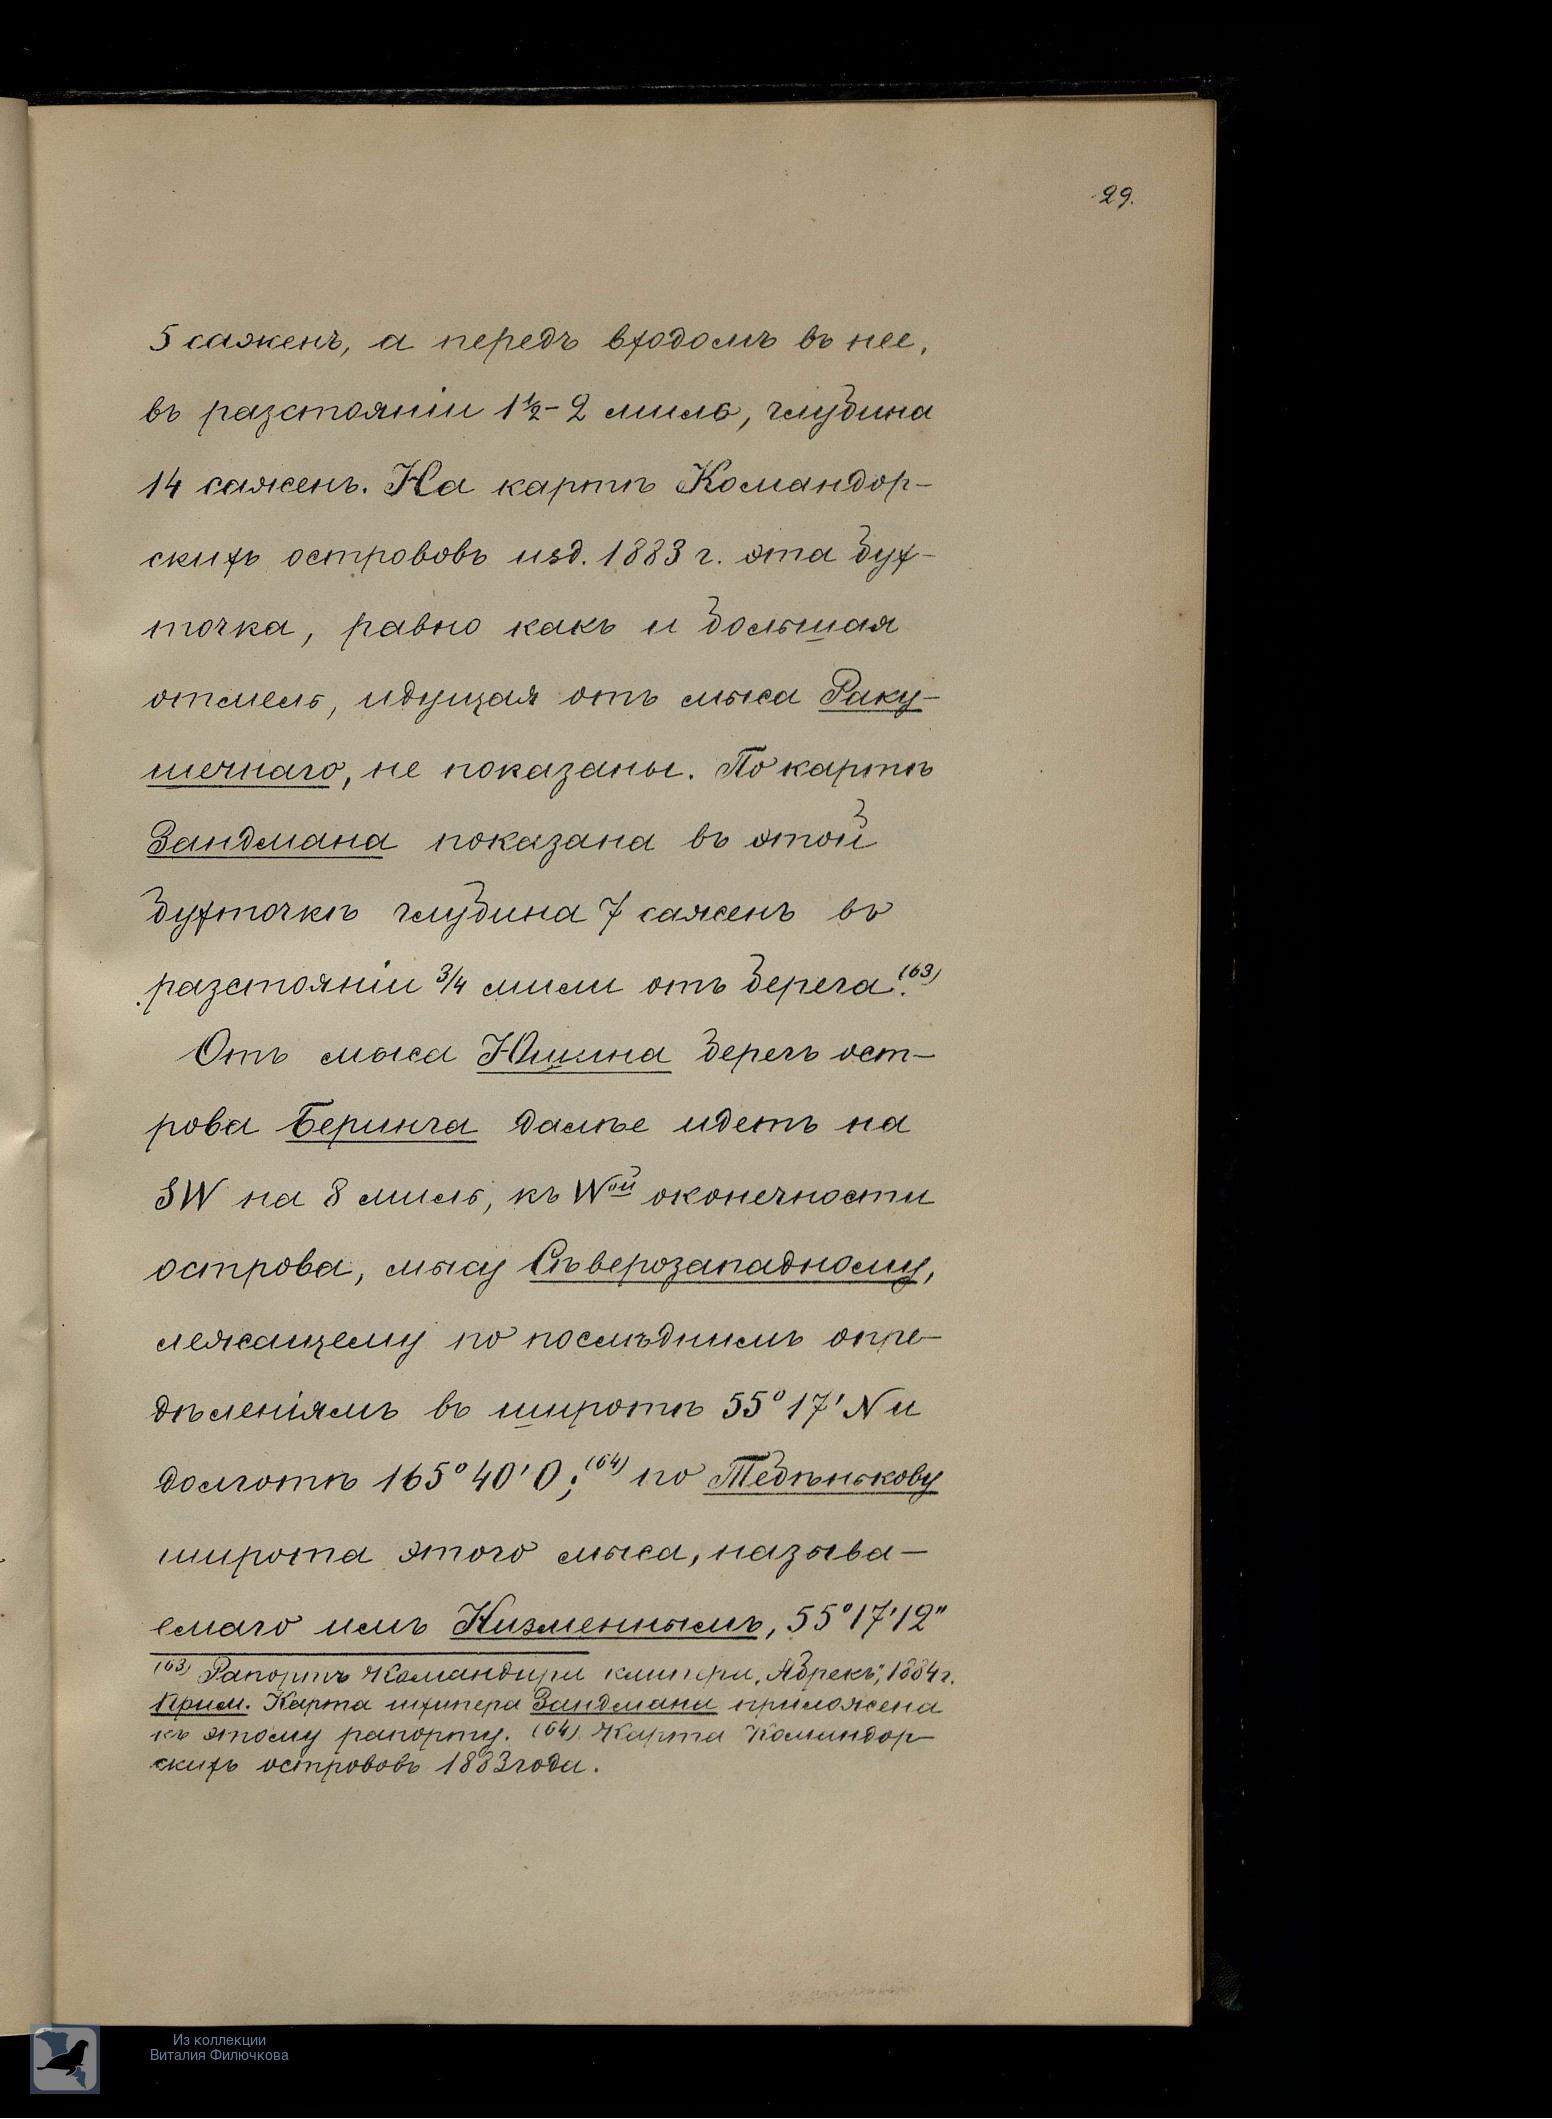 29.
5 сажень, а передъ входомъ въ нее,
въ разстояніи 1½–2 миль, глубина
14 сажень. На картѣ Командор–
скихъ острововъ изд. 1883 г. эта бух–
точка, равно какъ и большая
отмель, идущая отъ мыса Раку–
шечнаго, не показаны. По картѣ
Зандмана показана въ этой
бухточкѣ глубина 7 сажень въ
разстояніи ¾ мили отъ берега.(63)
Отъ мыса Юшина берегъ ост–
рова Беринга далѣе идетъ на
SW на 8 миль, къ Wой оконечности
острова, мысу Сѣверозападному,
лежащему по послѣднимъ опре–
дѣленіямъ въ широтѣ 55° 17' N и
долготѣ 165° 40' O;(64) по Тебѣнькову
широта этого мыса, называ–
емаго имъ Низменнымъ, 55°17'12"
(63) Рапортъ Командира клипера „Абрекъ", 1884 г.
Прим. Карта шхипера Зандмана приложена
къ этому рапорту. (64) Карта Командор–
скихъ острововъ 1883 года.
Из коллекции
Виталия Филючкова